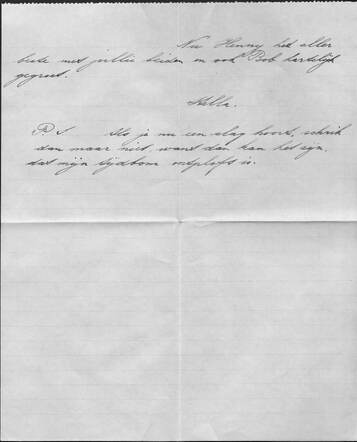 Nu Henny het aller
beste met jullie beiden en ook Bob hartelijk
gegroet.
Hella.
P.S. Als je nu een slag hoort, schrik
dan maar niet, want dan kan het zijn,
dat mijn tijdbom ontploft is.